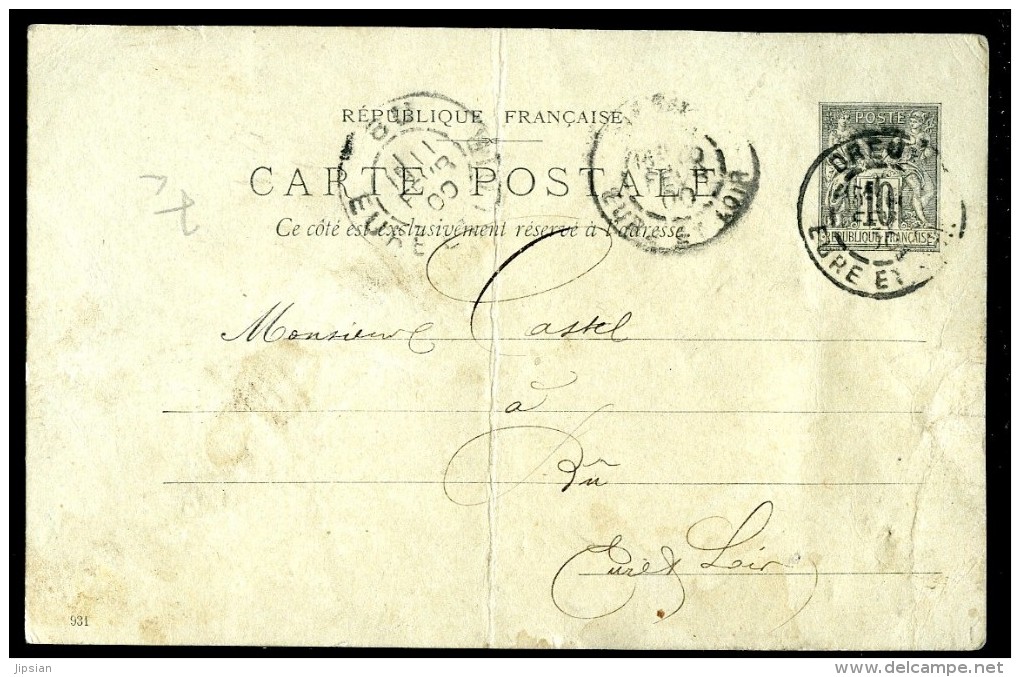 RÉPUBLIQUE FRANÇAISE
CARTE POSTALE
Ce côté est exclusivement réservé à l'adresse.
POSTE
10
RÉPUBLIQUE FRANÇAISE
DREUX
EURE ET
EURE ET LOIR
FEVR
00
BÛ
11
AVR
00
EURE
Monsieur Castel
à
Bû
Eure & Loir
931
Jipsian
delcampe.net